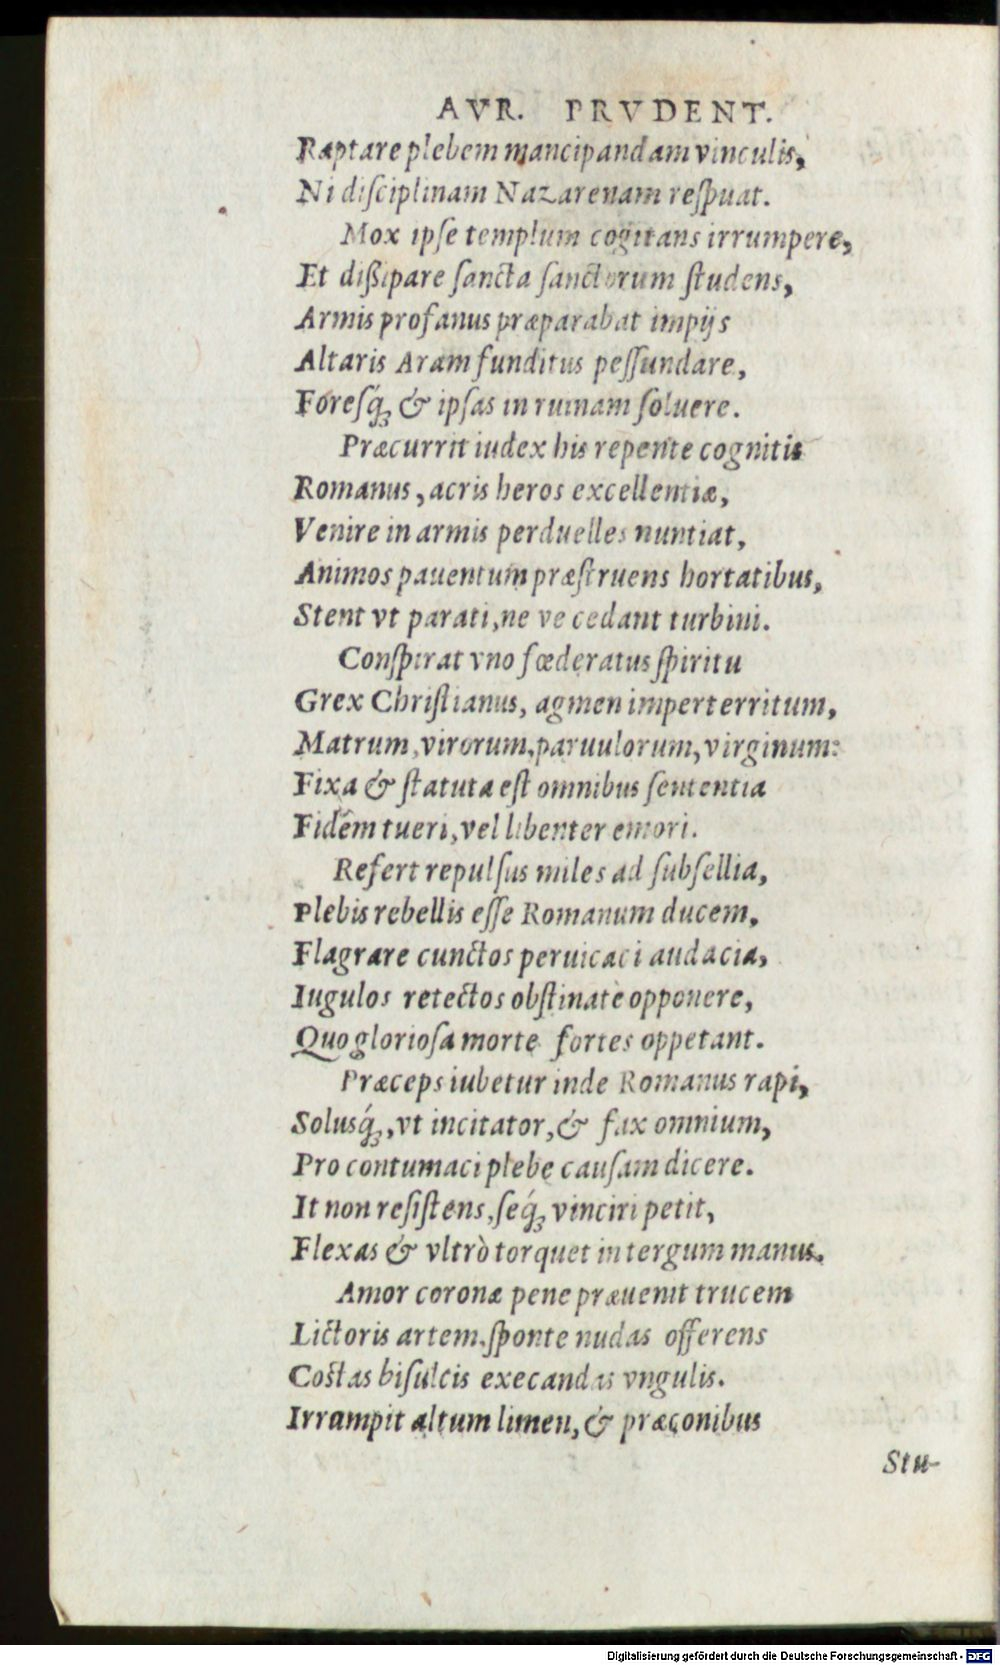 AVR. PRVDENT.
Raptare plebem mancipandam vinculis,
Ni diſciplinam Nazarenam reſpuat.
Mox ipſe templum cogitans irrumpere,
Et dißipare ſancta ſanctorum ſtudens,
Armis profanus præparabat impijs
Altaris Aram funditus peſſundare,
Foreſq́₃ & ipſas in ruinam ſoluere.
Præcurrit iudex his repente cognitis
Romanus, acris heros excellentiæ,
Venire in armis perduelles nuntiat,
Animos pauentum præſtruens hortatibus,
Stent vt parati, ne ve cedant turbini.
Conſpirat vno fœderatus ſpiritu
Grex Chriſtianus, agmen imperterritum,
Matrum, virorum, paruulorum, virginum:
Fixa & ſtatuta eſt omnibus ſententia
Fidem tueri, vel libenter emori.
Refert repulſus miles ad ſubſellia,
Plebis rebellis eſſe Romanum ducem,
Flagrare cunctos peruicaci audacia,
Iugulos retectos obſtinatè opponere,
Quo glorioſa morte fortes oppetant.
Præceps iubetur inde Romanus rapi,
Solusq́₃, vt incitator, & fax omnium,
Pro contumaci plebe cauſam dicere.
It non reſiſtens, ſeq́₃ vinciri petit,
Flexas & vltrò torquet in tergum manus.
Amor coronæ pene præuenit trucem
Lictoris artem, ſponte nudas offerens
Coſtas biſulcis execandas vngulis.
Irrumpit altum limen, & præconibus
Stu-
Digitalisierung gefördert durch die Deutsche Forschungsgemeinschaft - DFG